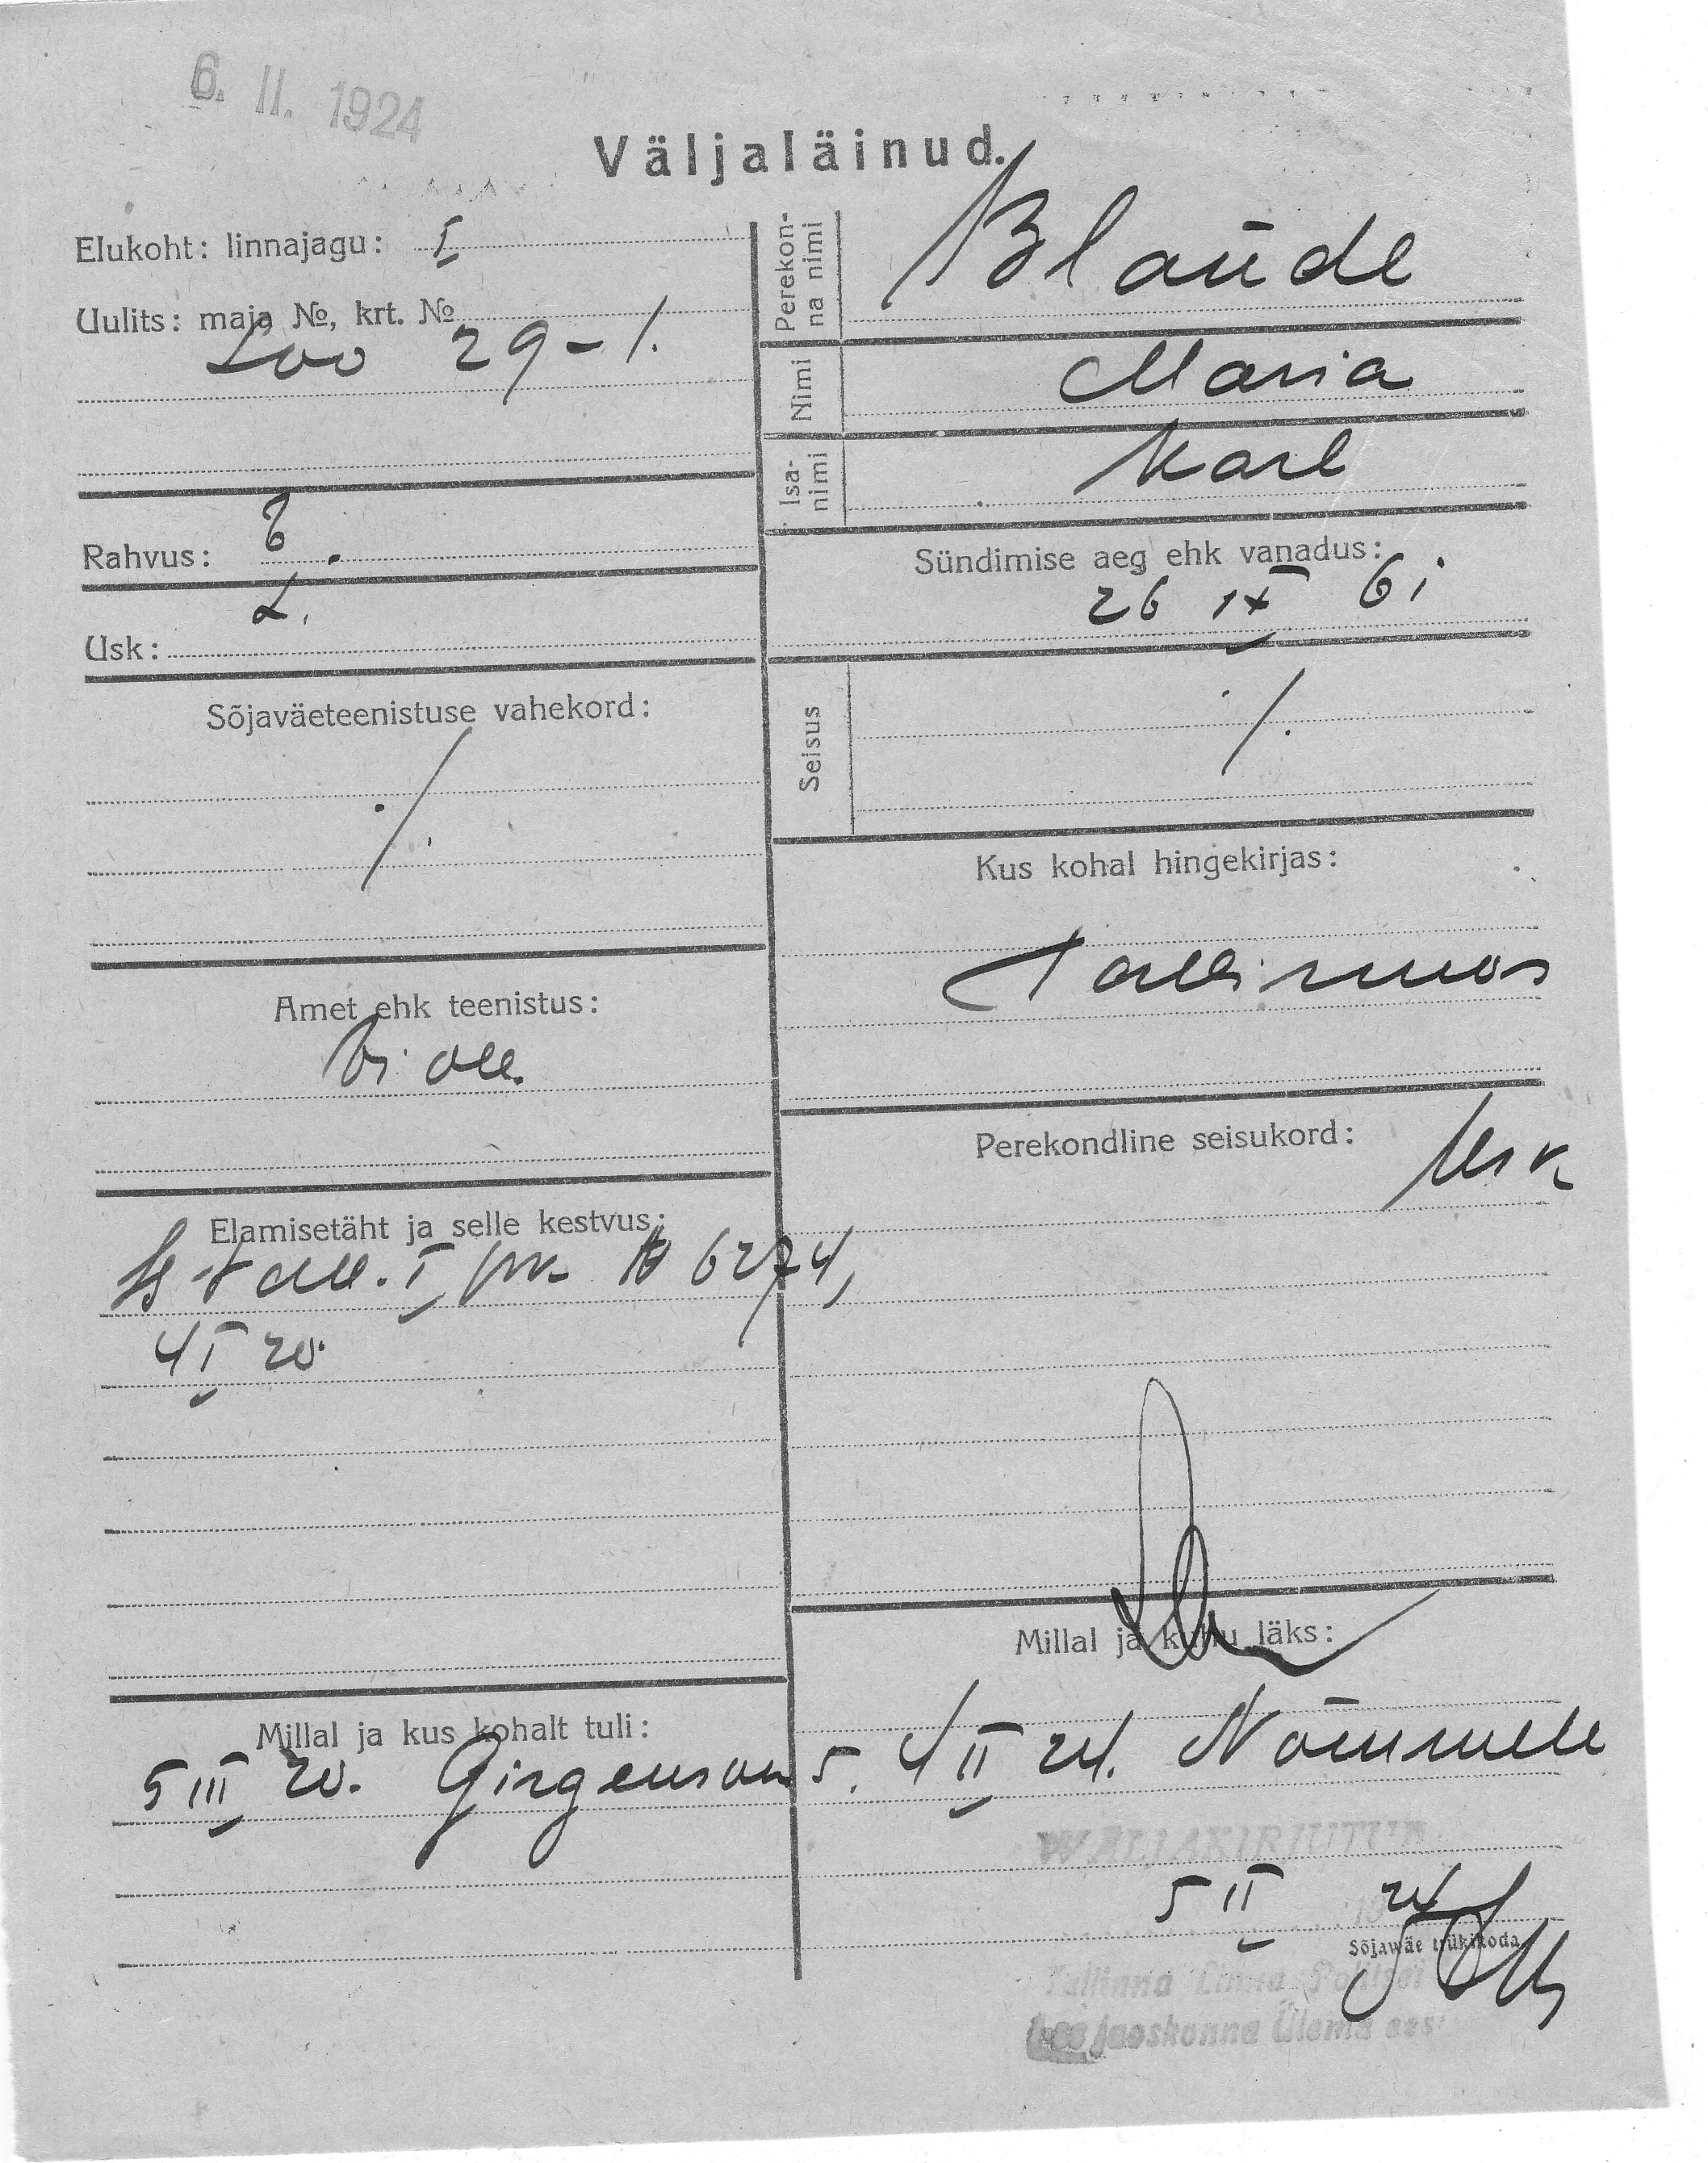 6. II. 1924
Väljaläinud.
Elukoht: linnajagu: I
Uulits: maja №, krt. №
Loo 29-1.
Rahvus: E.
Usk: L.
Sõjaväeteenistuse vahekord:
./.
Amet ehk teenistus:
Ei ole.
Elamisetäht ja selle kestvus:
Tall. I № 6274,
4 I 20.
Millal ja kus kohalt tuli:
5 III 20. Girgenson 5.
Perekonna nimi
Blaúde
Nimi
Maria
Isanimi
Karl
Sündimise aeg ehk vanadus:
26 IX 61
Seisus
./.
Kus kohal hingekirjas:
Tallinnas
Perekondline seisukord:
Millal ja kuhu läks:
4 II 24. Nõmmele
WÄLJAKIRJUTUD
5 II 24
Sõjawäe trükikoda.
Tallinna Linna Politsei
jaoskonna Ülema ees